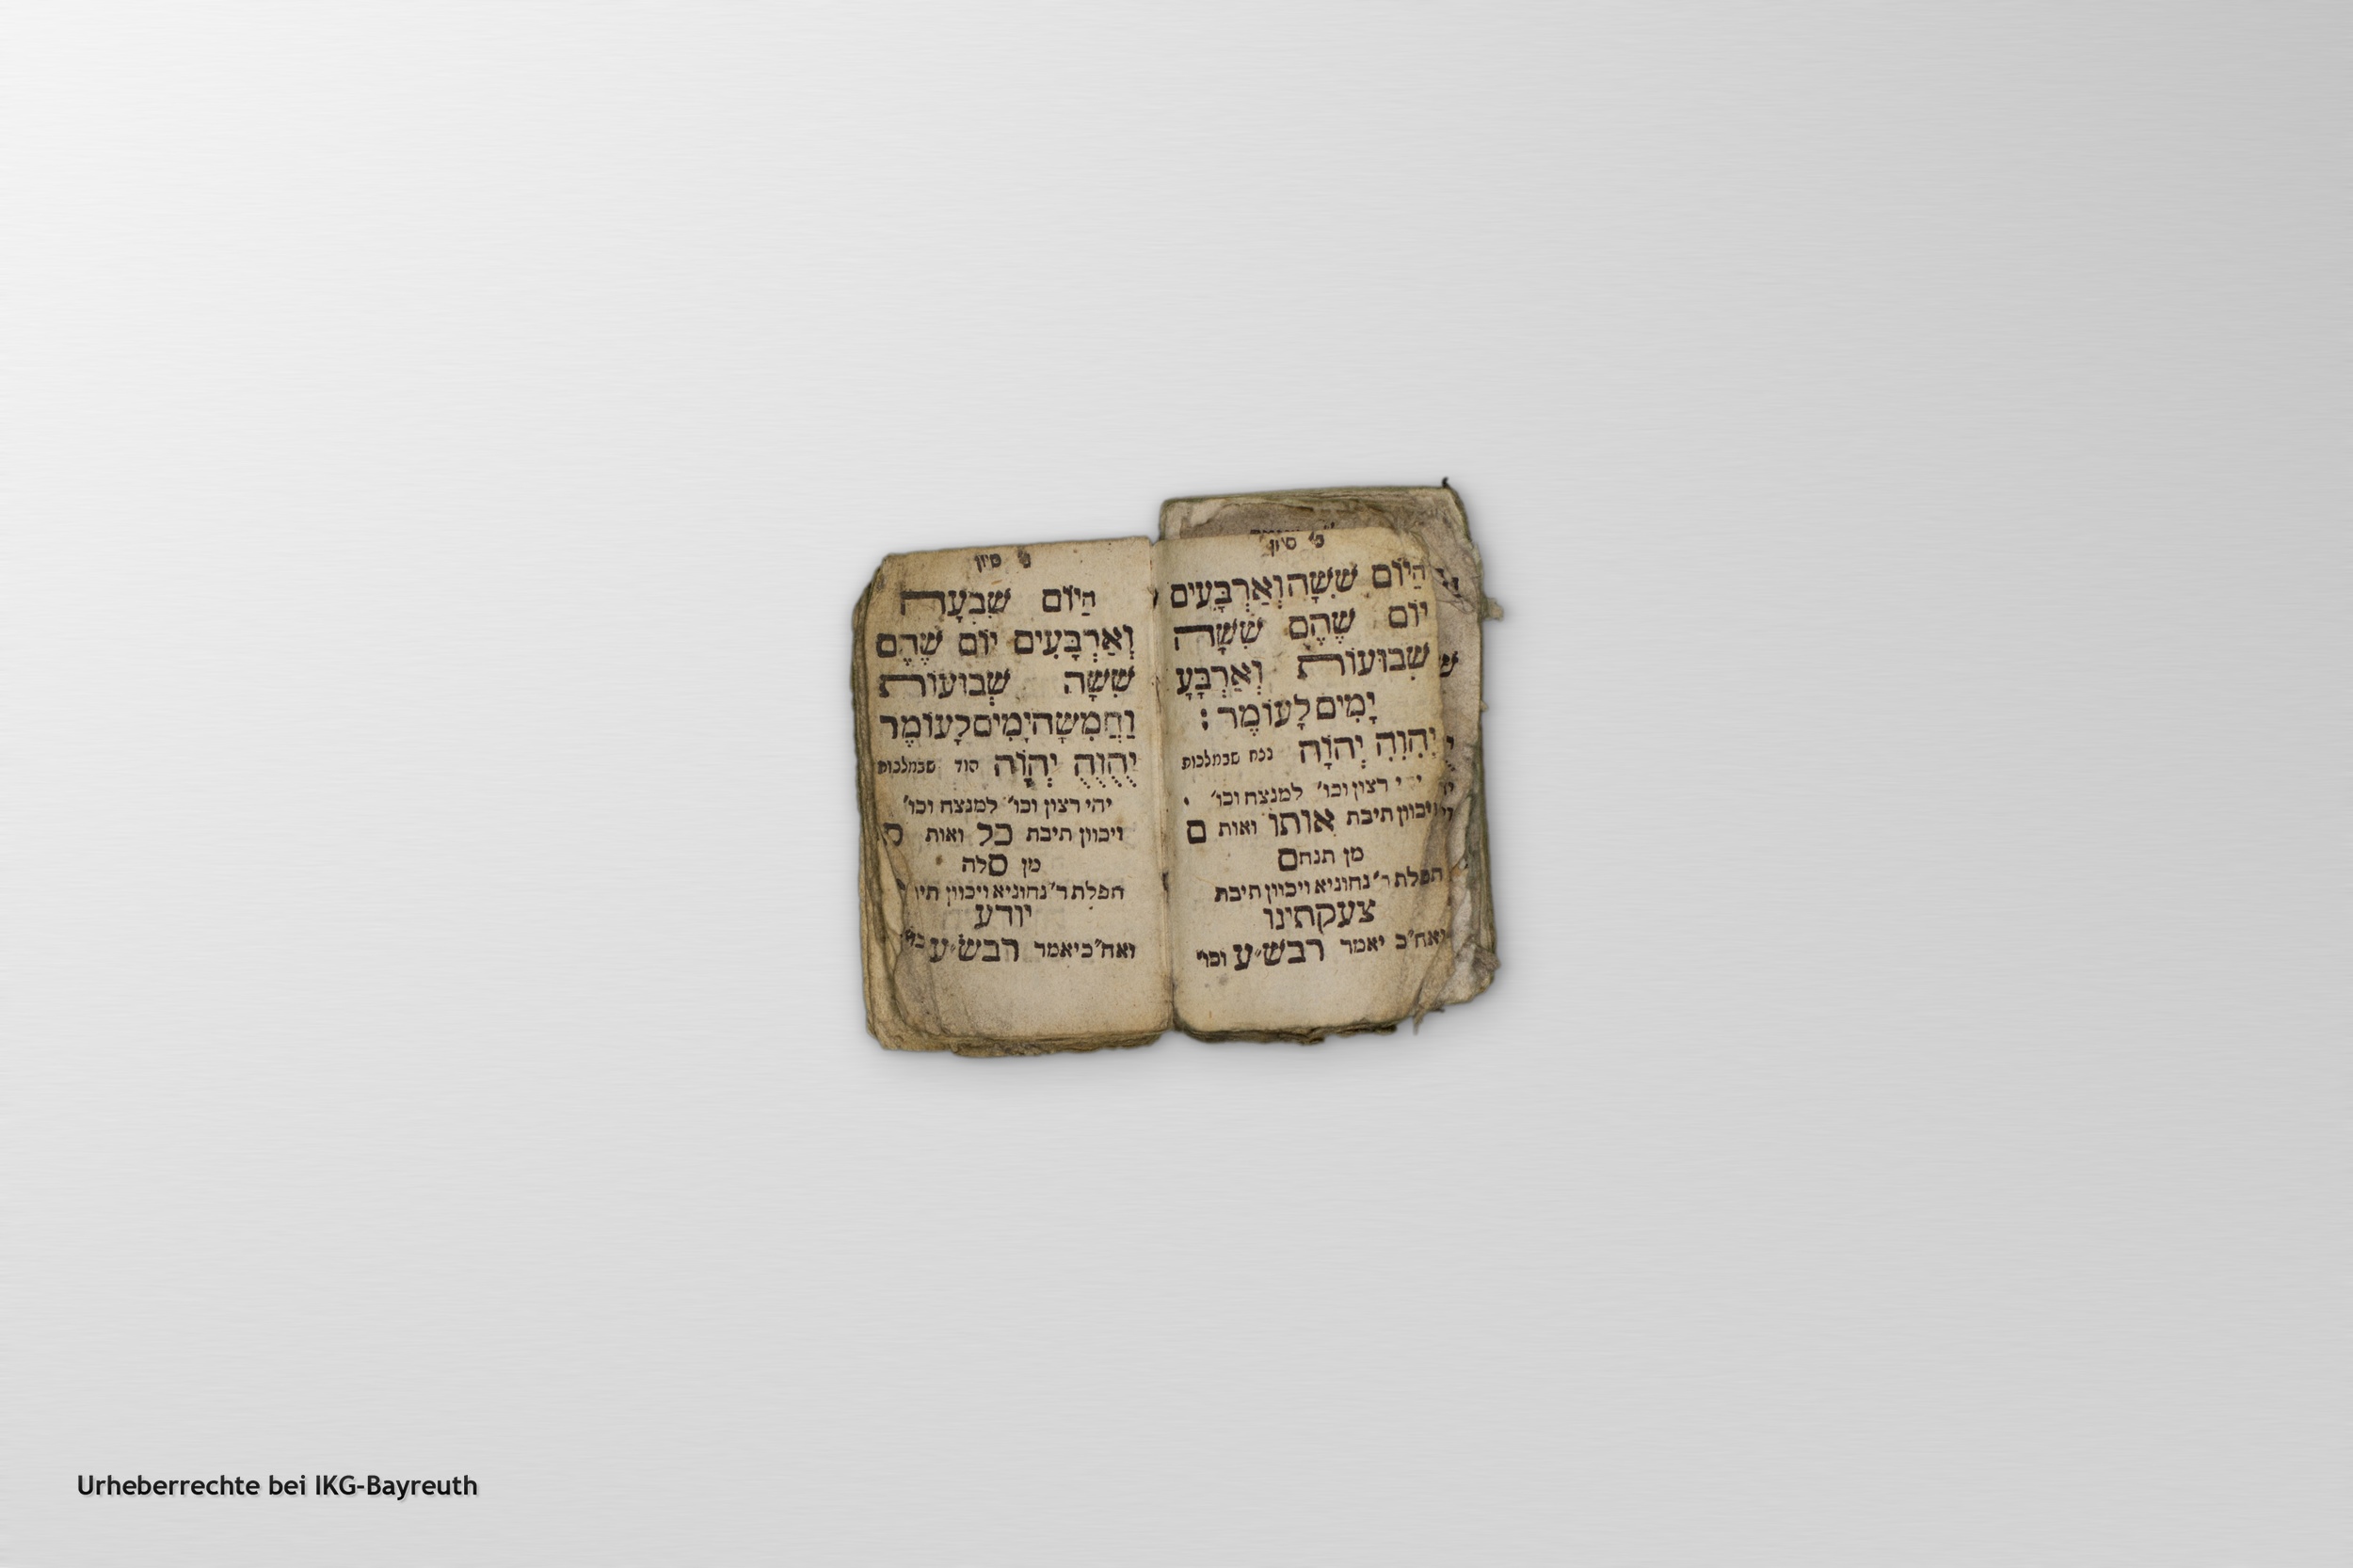 ב׳ סיון
הַיּוֹם שִׁשָּׁה וְאַרְבָּעִים
יוֹם שֶׁהֵם שִׁשָּׁה
שָׁבוּעוֹת וְאַרְבָּעָ
יָמִים לָעוֹמֶר :
יִהִוִהִ יְהוָֹה נצח שבמלכות
יהי רצון וכו׳ למנצח וכו׳
ויכוון תיבת אותו ואות ם
מן תנחם
תפלת ר׳ נחוניא ויכוון תיבת
צעקתינו
ואח״כ יאמר רבש״ע וכו׳
סיון
הַיּוֹם שִׁבְעָה
וְאַרְבָּעִים יוֹם שֶׁהֵם
שִׁשָּׁה שָׁבוּעוֹת
וַחֲמִשָּׁה יָמִים לָעוֹמֶר
יֻהֻוֻהֻ יְהוָֹה הוד שבמלכות
יהי רצון וכו׳ למנצח וכו׳
ויכוון תיבת כל ואות ס
מן סלה
תפלת ר׳ נחוניא ויכוון
יודע
ואח״כ יאמר רבש״ע
Urheberrechte bei IKG-Bayreuth